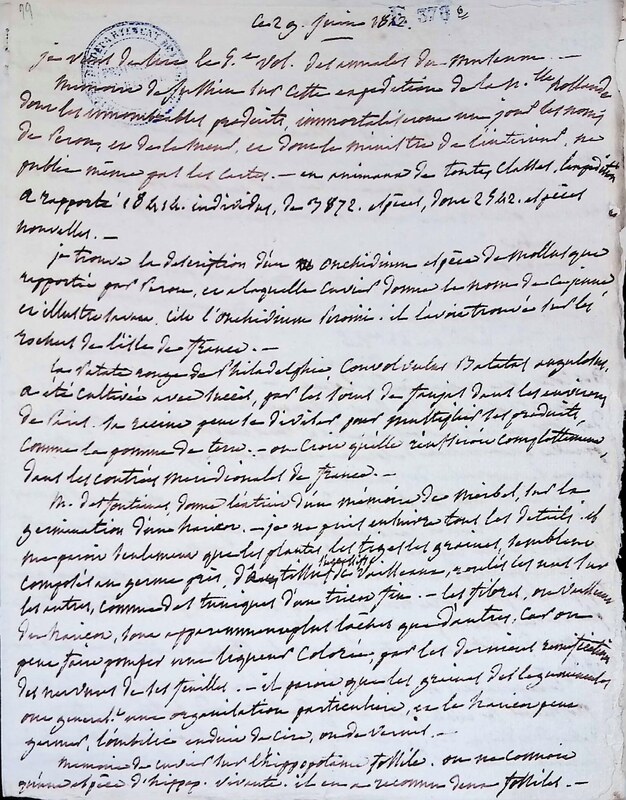 79
ce 29. juin 1812.
376
6
je viens de lire le 5.e vol. des annales du museum. —
memoire de jussieu sur cette expedition de la n.lle hollande
dont les innombrables produits, immortaliseront un jour les noms
de Peron, et de le sueur, et dont le ministre de l'interieur, ne
publie même pas les cartes. — en animaux de toutes classes, l'expedition
a rapporté 18414. individus, de 3872. espèces, dont 2542. espèces
nouvelles. —
je trouve la description d'un onchidium espèce de mollusque
rapportée par Peron, et a laquelle Cuvier donne le nom de ce jeune
et illustre savant. C'est l'onchidium Peronii. il l'avoit trouvée sur les
rochers de l'isle de france. —
La Patate rouge de Philadelphie, Convolvulus Batatas angulosus,
a été cultivée avec succès, par les soins de dans les environs
de Paris. sa racine peut se diviser pour multiplier ses produits,
comme la pomme de terre. — on croit qu'elle réussiroit complettement,
dans les contrées meridionales de france. —
M. desfontaines, donne l'extrait d'un mémoire de mirbel, sur la
germination d'un haricot. — je ne puis suivre tous les details. il
me paroit seulement que les plantes, les tiges, les graines, semblent
composés au germe près, de vaisseaux, roulés les uns sur
les autres, comme des tuniques d'un tricot fin. — les fibres, ou vaisseaux
du haricot, sont apparemment plus laches que d'autres, car on
peut faire pomper une liqueur colorée, par les dernieres ramifications
des nervures de ses feuilles. — il paroit que les graines des legumineuses
ont general.t une organisation particuliere, et le haricot peut
germer, l'ombilic enduit de cire, ou de vernis. —
memoire de cuvier sur l'hippopotame fossile. on ne connoit
qu'une espèce d'hippop. vivante. il en a reconnu deux fossiles. —